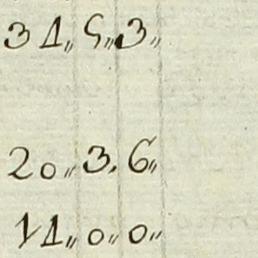 31,, 5,, 3,,
20,, 3. 6,,
11,, 0,, 0,,